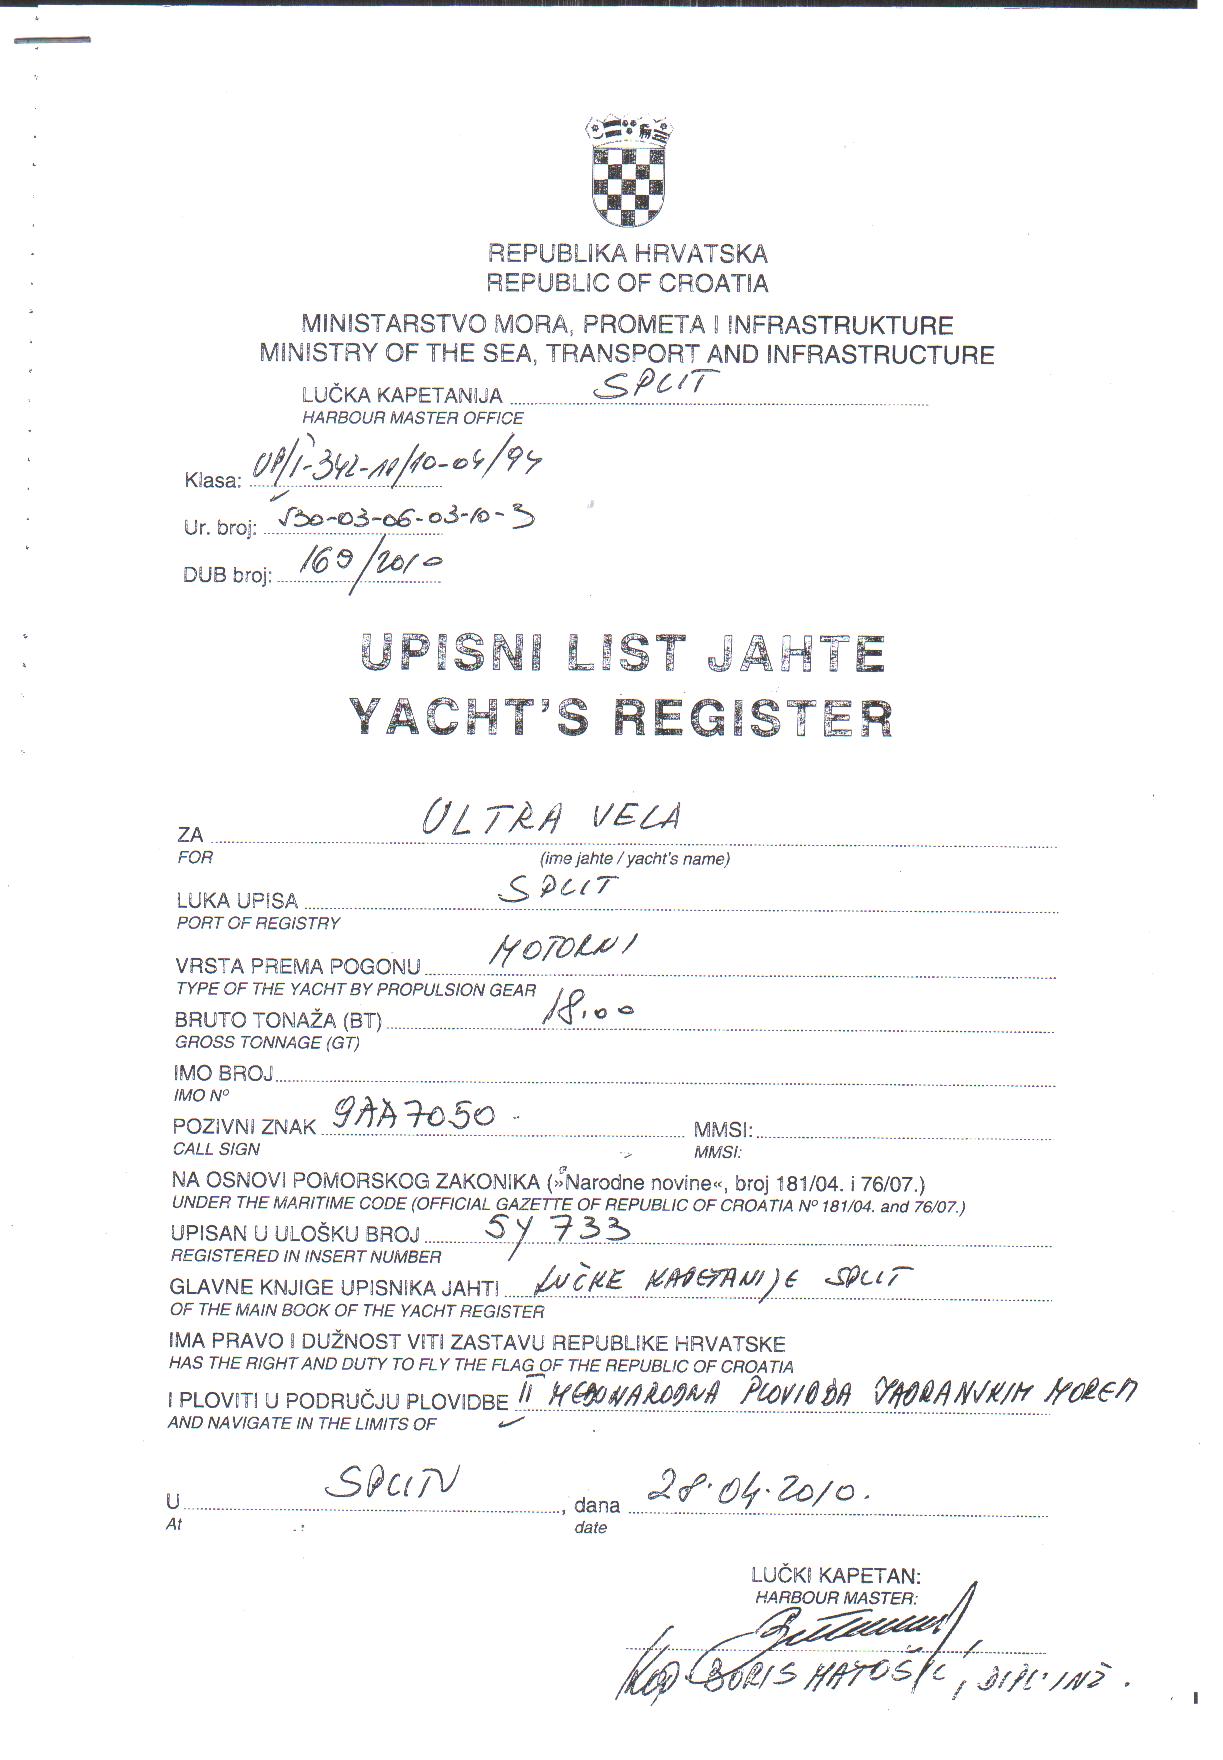 REPUBLIKA HRVATSKA
REPUBLIC OF CROATIA
MINISTARSTVO MORA, PROMETA I INFRASTRUKTURE
MINISTRY OF THE SEA, TRANSPORT AND INFRASTRUCTURE
LUČKA KAPETANIJA SPLIT
HARBOUR MASTER OFFICE
Klasa: UP/I-342-11/10-04/94
Ur. broj: 530-03-06-03-10-3
DUB broj: 169/2010
UPISNI LIST JAHTE
YACHT'S REGISTER
ZA ULTRA VELA
FOR (ime jahte / yacht's name)
LUKA UPISA SPLIT
PORT OF REGISTRY
VRSTA PREMA POGONU MOTORNI
TYPE OF THE YACHT BY PROPULSION GEAR
BRUTO TONAŽA (BT) 18.00
GROSS TONNAGE (GT)
IMO BROJ
IMO Nº
POZIVNI ZNAK 9AA7050 MMSI:
CALL SIGN MMSI:
NA OSNOVI POMORSKOG ZAKONIKA (»Narodne novine«, broj 181/04. i 76/07.)
UNDER THE MARITIME CODE (OFFICIAL GAZETTE OF REPUBLIC OF CROATIA Nº 181/04. and 76/07.)
UPISAN U ULOŠKU BROJ SY 733
REGISTERED IN INSERT NUMBER
GLAVNE KNJIGE UPISNIKA JAHTI LUČKE KAPETANIJE SPLIT
OF THE MAIN BOOK OF THE YACHT REGISTER
IMA PRAVO I DUŽNOST VITI ZASTAVU REPUBLIKE HRVATSKE
HAS THE RIGHT AND DUTY TO FLY THE FLAG OF THE REPUBLIC OF CROATIA
I PLOVITI U PODRUČJU PLOVIDBE II MEĐUNARODNA PLOVIDBA JADRANSKIM MOREM
AND NAVIGATE IN THE LIMITS OF
U SPLITU, dana 28.04.2010.
At date
LUČKI KAPETAN:
HARBOUR MASTER:
Kap. BORIS MATOŠIĆ, DIPL. INŽ.